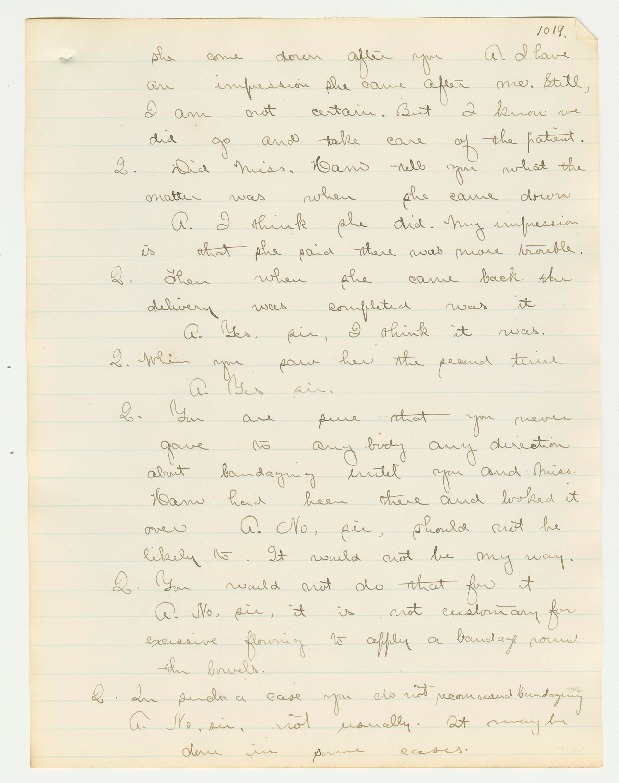 1019.
she come down after you A. I have
an impression she came after me. Still,
I am not certain. But I know we
did go and take care of the patient.
Q. Did Miss. Ham tell you what the
matter was when she came down
A. I think she did. My impression
is that she said there was more trouble.
Q. Then when she came back the
delivery was completed was it
A. Yes, sir, I think it was.
Q. When you saw her the second time
A. Yes sir.
Q. You are sure that you never
gave to any body any direction
about bandaging until you and Miss.
Ham had been there and looked it
over A. No, sir, should not be
likely to. It would not be my way.
Q. You would not do that for it
A. No, sir, it is not customary for
excessive flowing to apply a bandage round
the bowels.
Q. In such a case you do not recommend bandaging
A. No, sir, not usually. It may be
done in some cases.